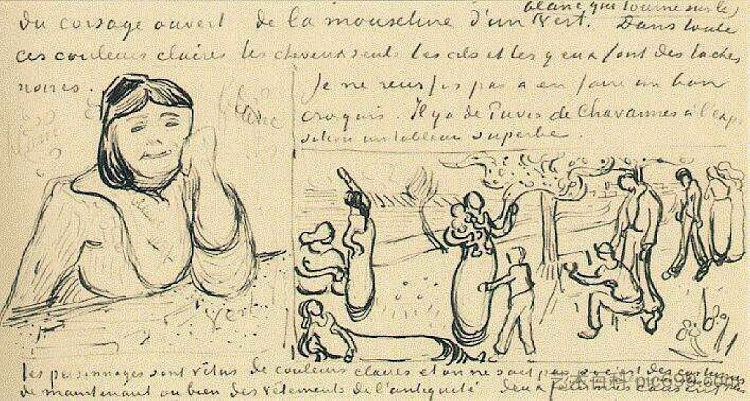 blanc qui tourne sur les
du corsage ouvert de la mousseline d'un vert. Dans toute
ces couleurs claires les cheveux seuls les cils et les yeux font des taches
noires. Je ne reussis pas a en faire un bon
croquis. Il y a de Puvis de Chavannes à l'expo
sition un tableau superbe.
vert
les personnages sont vêtus de couleurs claires et on ne sait pas si ce sont des costumes
de maintenant ou bien des vêtements de l'antiquité deux femmes causent